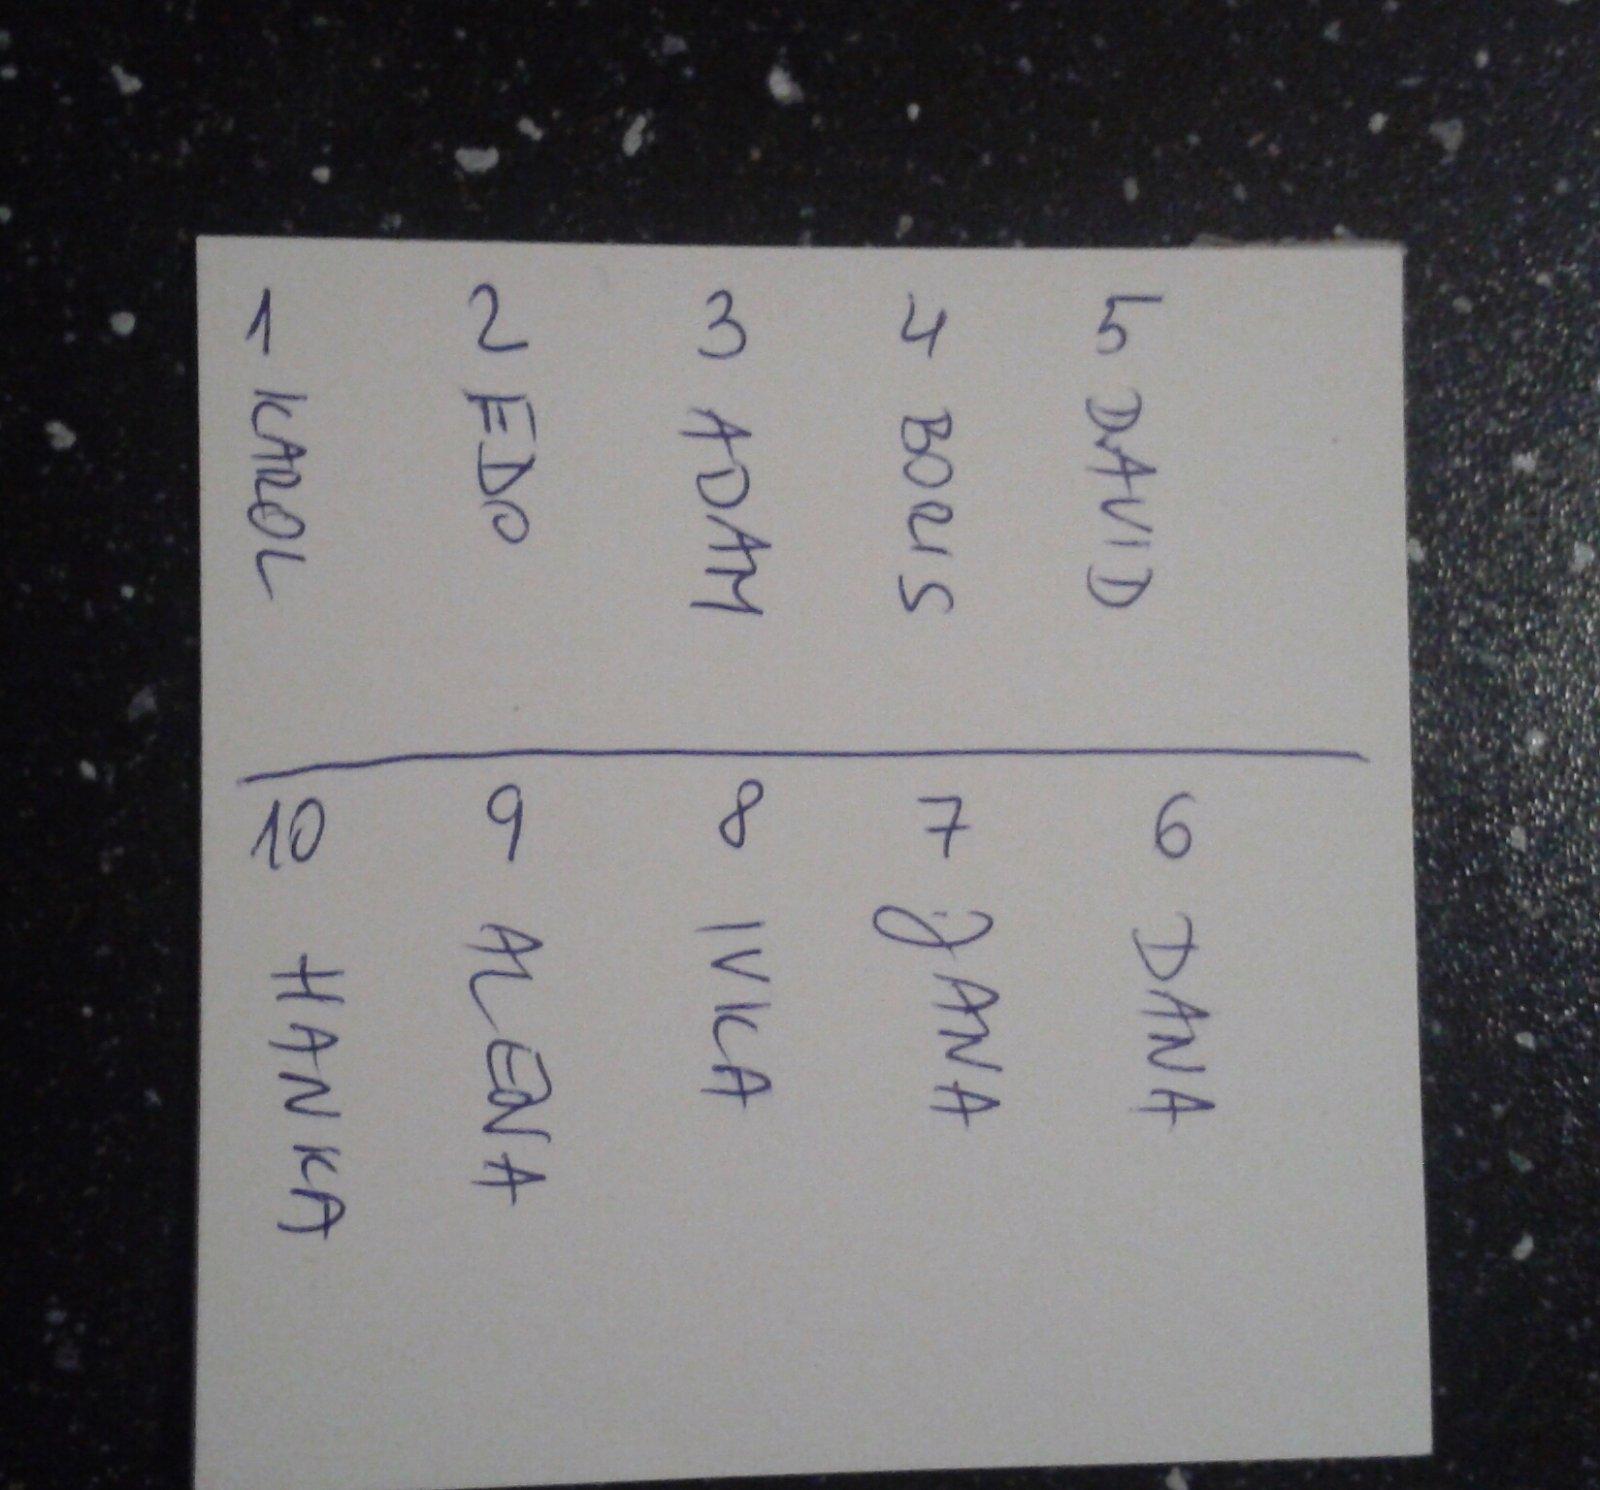 1 KAROL
2 EDO
3 ADAM
4 BORIS
5 DAVID
10 HANKA
9 ALENA
8 IVKA
7 JANA
6 DANA